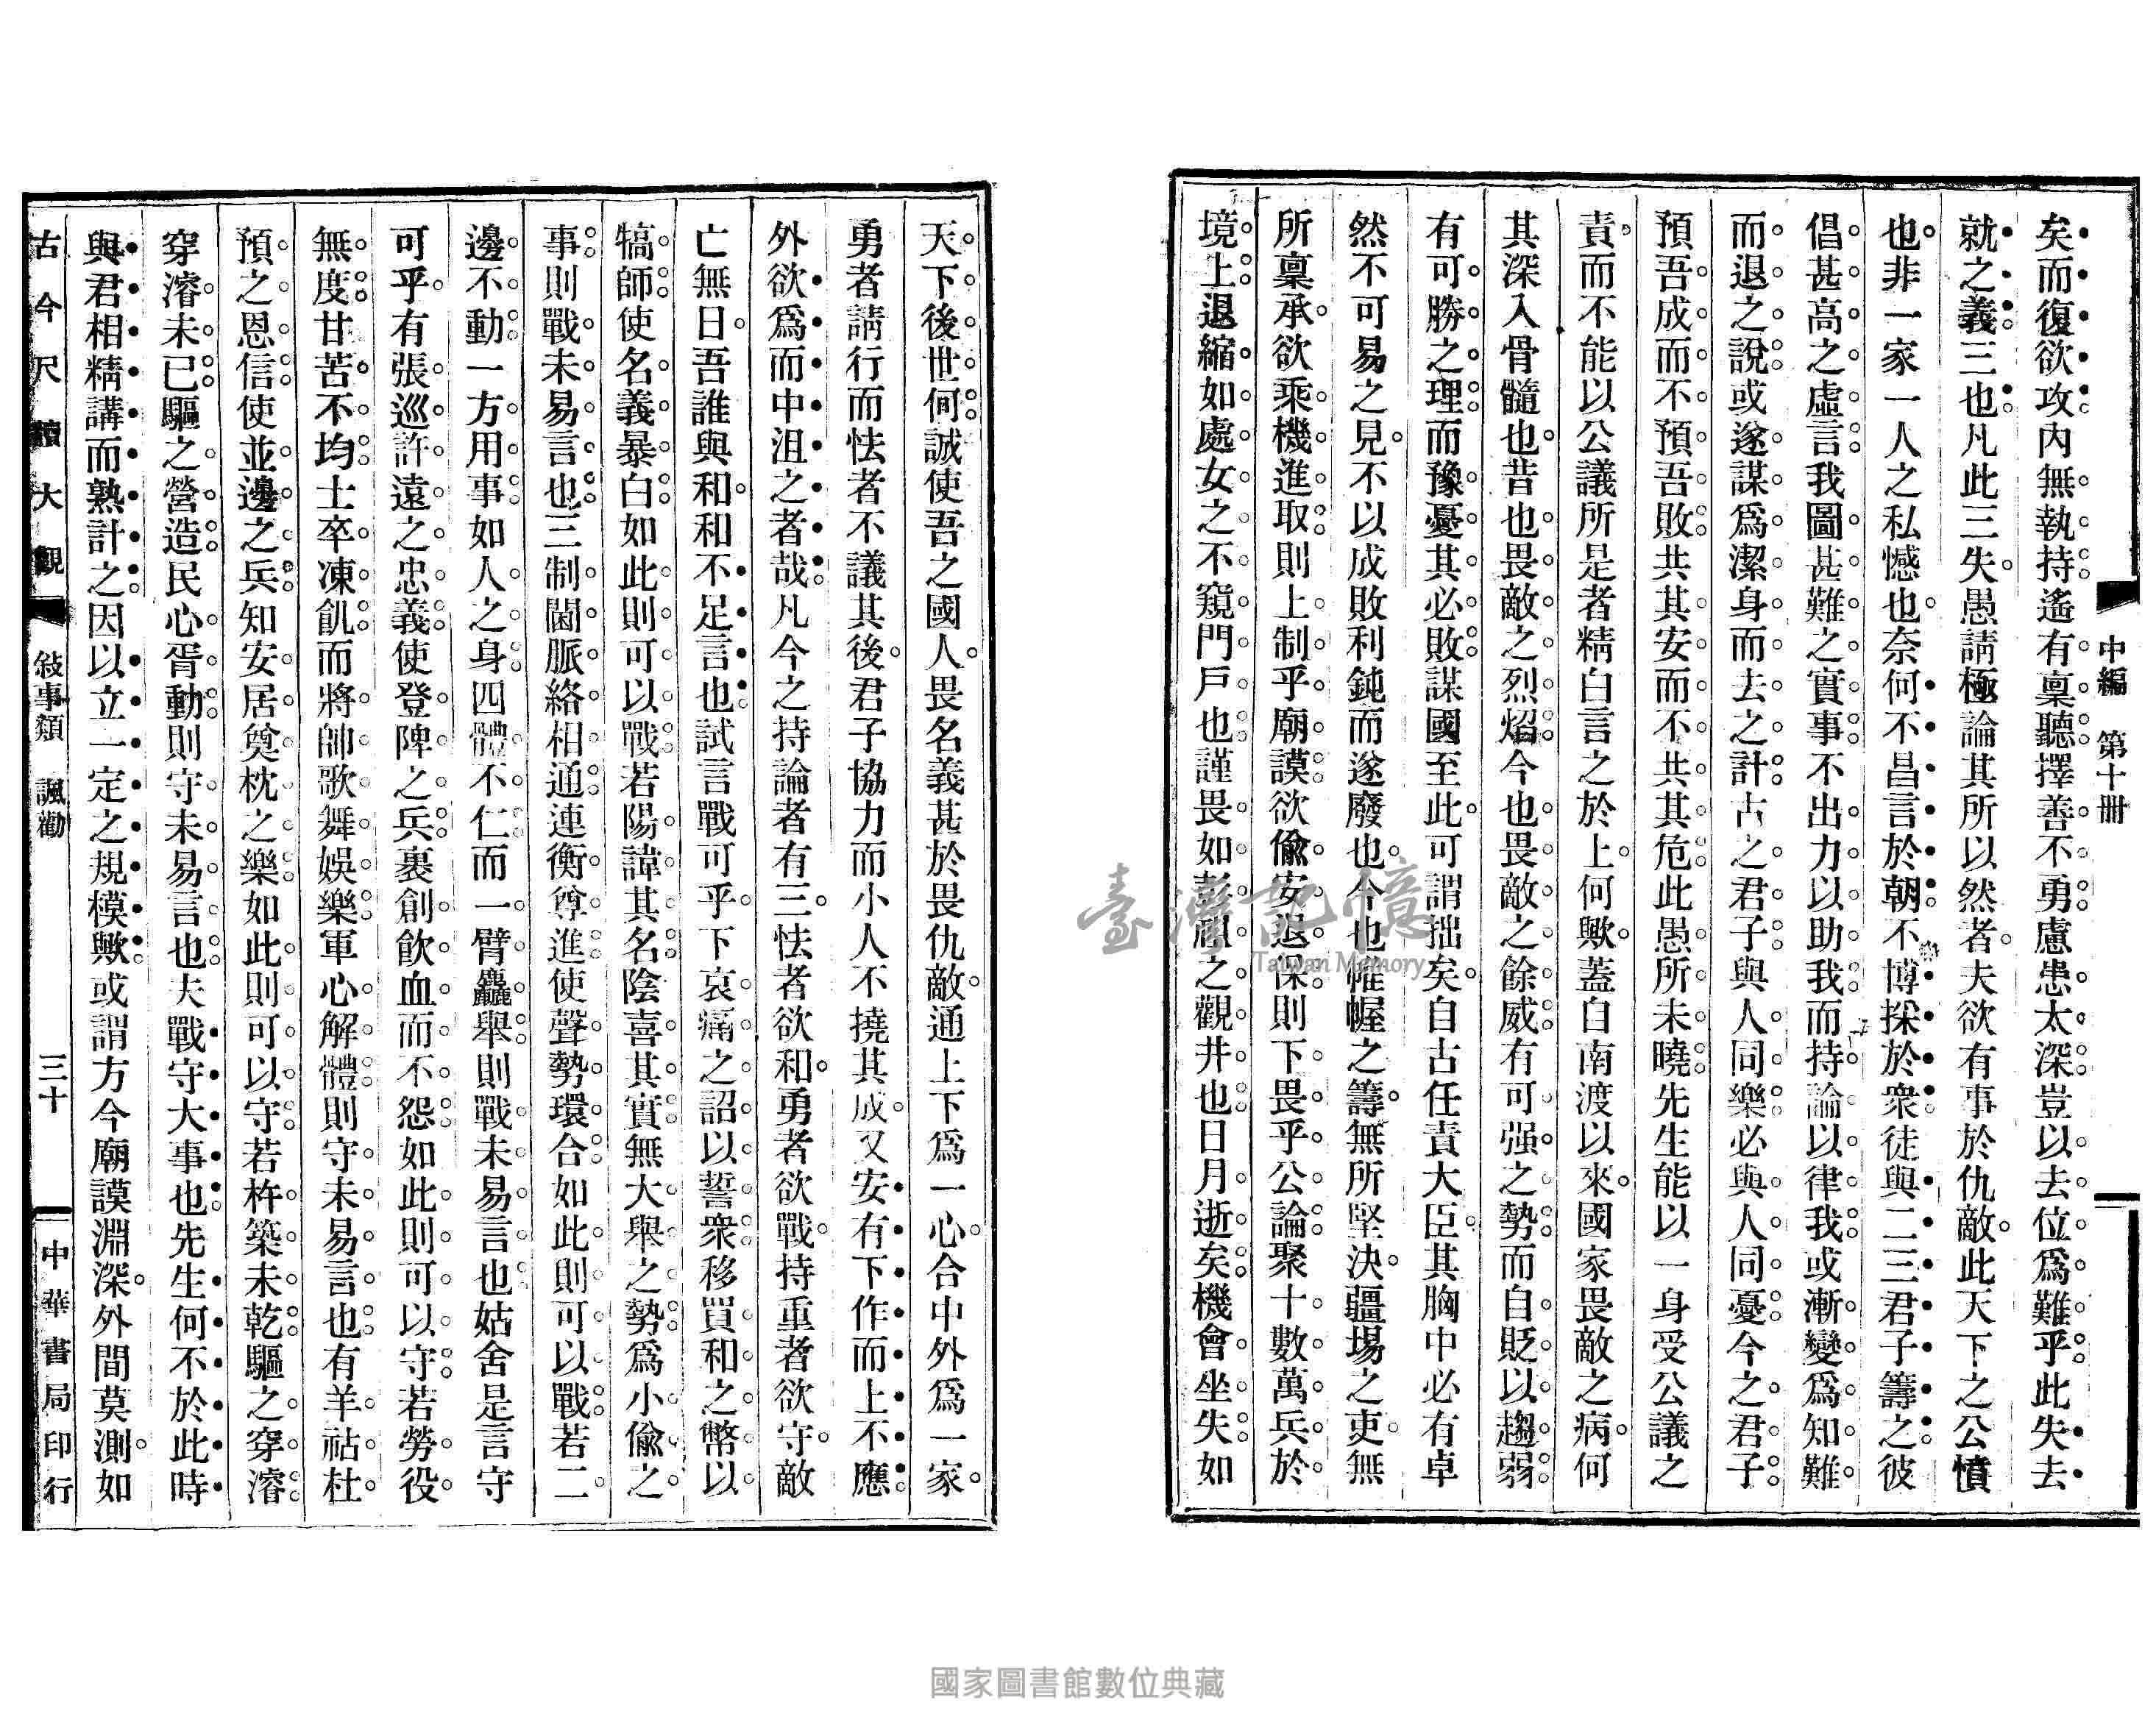 中編　第十冊
矣而復欲攻內無執持遙有稟聽擇善不勇慮患太深豈以去位爲難乎此失去
就之義三也凡此三失愚請極論其所以然者夫欲有事於仇敵此天下之公憤
也非一家一人之私憾也奈何不昌言於朝不博採於衆徒與二三君子籌之彼
倡甚高之虛言我圖甚難之實事不出力以助我而持論以律我或漸變爲知難
而退之說或遂謀爲潔身而去之計古之君子與人同樂必與人同憂今之君子
預吾成而不預吾敗共其安而不共其危此愚所未曉先生能以一身受公議之
責而不能以公議所是者精白言之於上何歟蓋自南渡以來國家畏敵之病何
其深入骨髓也昔也畏敵之烈焰今也畏敵之餘威有可强之勢而自貶以趨弱
有可勝之理而豫憂其必敗謀國至此可謂拙矣自古任責大臣其胸中必有卓
然不可易之見不以成敗利鈍而遂廢也今也帷幄之籌無所堅決疆場之吏無
所稟承欲乘機進取則上制乎廟謨欲偸安退保則下畏乎公論聚十數萬兵於
境上退縮如處女之不窺門戶也謹畏如彭祖之觀井也日月逝矣機會坐失如
天下後世何誠使吾之國人畏名義甚於畏仇敵通上下爲一心合中外爲一家
勇者請行而怯者不議其後君子協力而小人不撓其成又安有下作而上不應
外欲爲而中沮之者哉凡今之持論者有三怯者欲和勇者欲戰持重者欲守敵
亡無日吾誰與和和不足言也試言戰可乎下哀痛之詔以誓衆移買和之幣以
犒師使名義暴白如此則可以戰若陽諱其名陰喜其實無大舉之勢爲小偸之
事則戰未易言也三制閫脈絡相通連衡尊進使聲勢環合如此則可以戰若二
邊不動一方用事如人之身四體不仁而一臂麤舉則戰未易言也姑舍是言守
可乎有張巡許遠之忠義使登陴之兵裹創飮血而不怨如此則可以守若勞役
無度甘苦不均士卒凍飢而將帥歌舞娛樂軍心解體則守未易言也有羊祜杜
預之恩信使並邊之兵知安居奠枕之樂如此則可以守若杵築未乾驅之穿濬
穿濬未已驅之營造民心胥動則守未易言也夫戰守大事也先生何不於此時
與君相精講而熟計之因以立一定之規模歟或謂方今廟謨淵深外間莫測如
古今尺牘大觀　敍事類　諷勸　三十　中華書局印行
臺灣記憶
Taiwan Memory
國家圖書館數位典藏